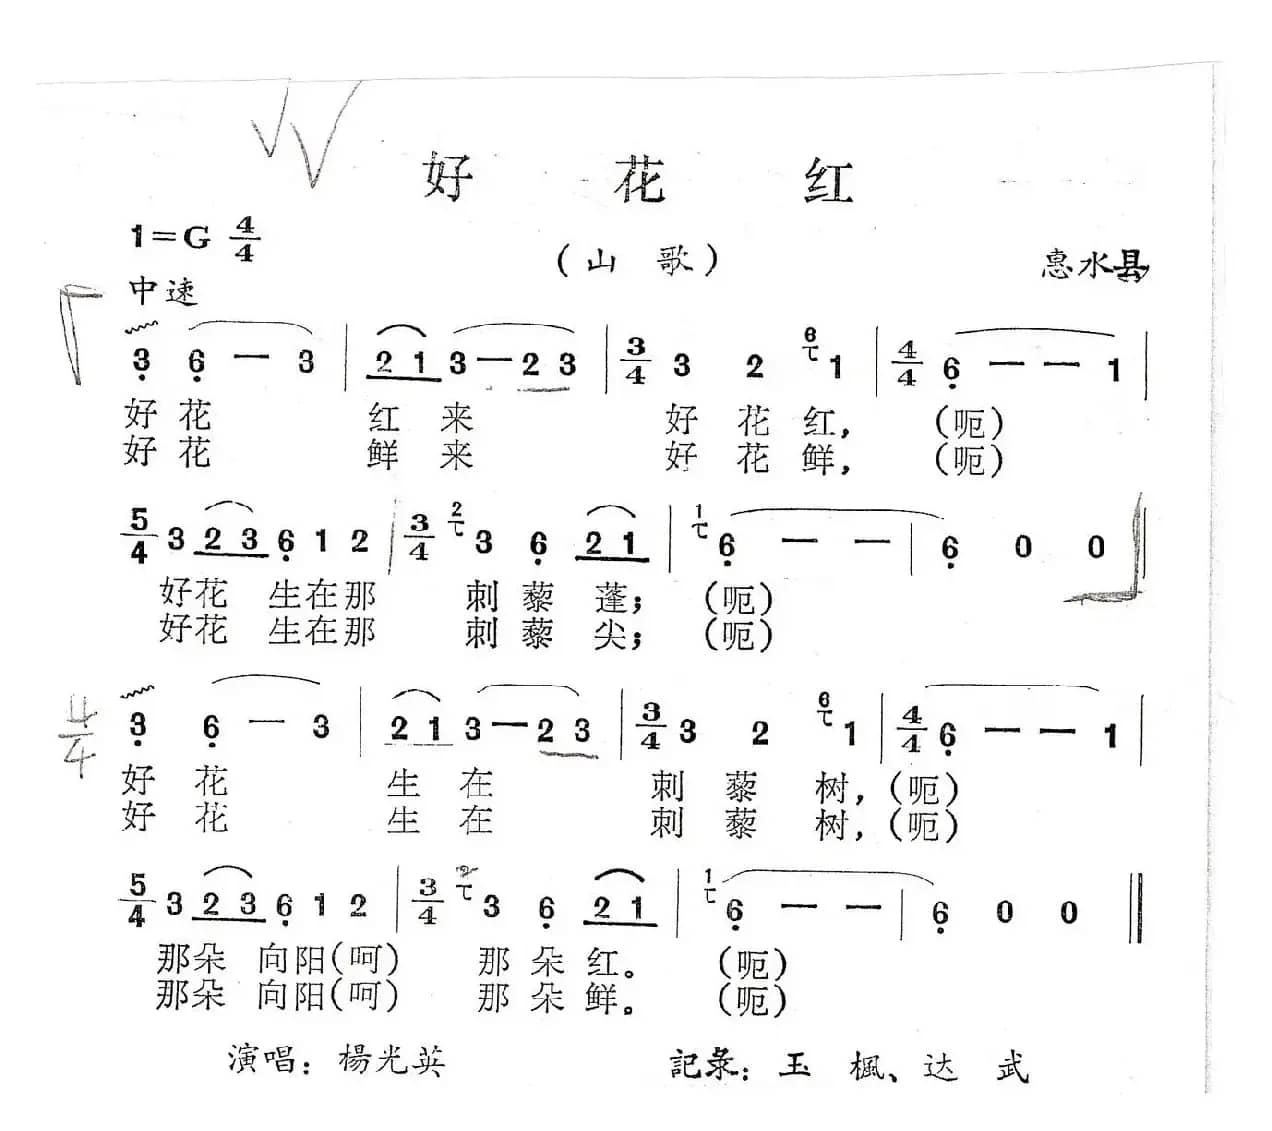 好 花 红
1=G 4/4
(山 歌)
惠水县
中速
3 6 — 3 | 2 1 3 — 2 3 | 3/4 3 2 6 1 | 4/4 6 — — 1 |
好 花 红 来 好 花 红, (呃)
好 花 鲜 来 好 花 鲜, (呃)
5/4 3 2 3 6 1 2 | 3/4 2 3 6 2 1 | 1 6 — — | 6 0 0 |
好花 生在那 刺 藜 蓬; (呃)
好花 生在那 刺 藜 尖; (呃)
4/4 3 6 — 3 | 2 1 3 — 2 3 | 3/4 3 2 6 1 | 4/4 6 — — 1 |
好 花 生 在 刺 藜 树, (呃)
好 花 生 在 刺 藜 树, (呃)
5/4 3 2 3 6 1 2 | 3/4 2 3 6 2 1 | 1 6 — — | 6 0 0 ‖
那朵 向阳(呵) 那 朵 红。 (呃)
那朵 向阳(呵) 那 朵 鲜。 (呃)
演唱: 楊光英 記录: 玉 楓、达 武